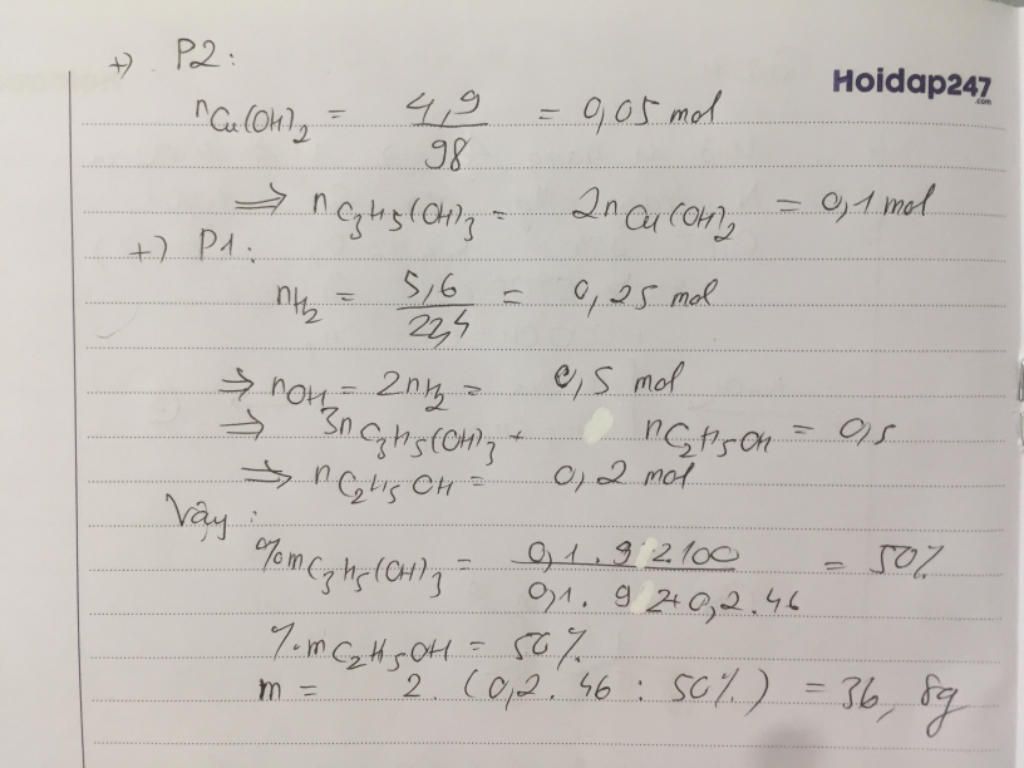 +) P2:
Hoidap247
.com
nCu(OH)2 = 4,9/98 = 0,05 mol
=> nC3H5(OH)3 = 2nCu(OH)2 = 0,1 mol
+) P1:
nH2 = 5,6/22,4 = 0,25 mol
=> nOH = 2nH2 = 0,5 mol
=> 3nC3H5(OH)3 + nC2H5OH = 0,5
=> nC2H5OH = 0,2 mol
Vậy:
%mC3H5(OH)3 = 0,1.92.100/0,1.92+0,2.46 = 50%
%mC2H5OH = 50%
m = 2.(0,2.46:50%) = 36,8g